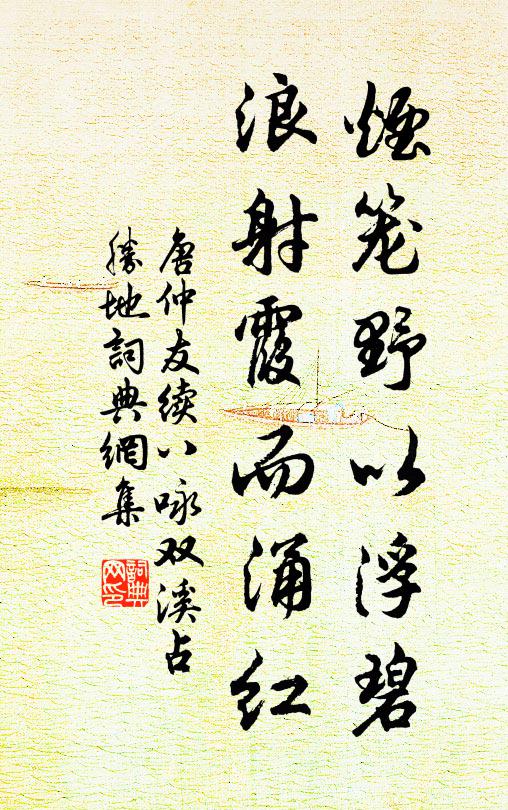 煙笼野以浮碧
浪射霞而涌红
唐仲友续八咏双溪占
勝地詞典網集
詞典网印